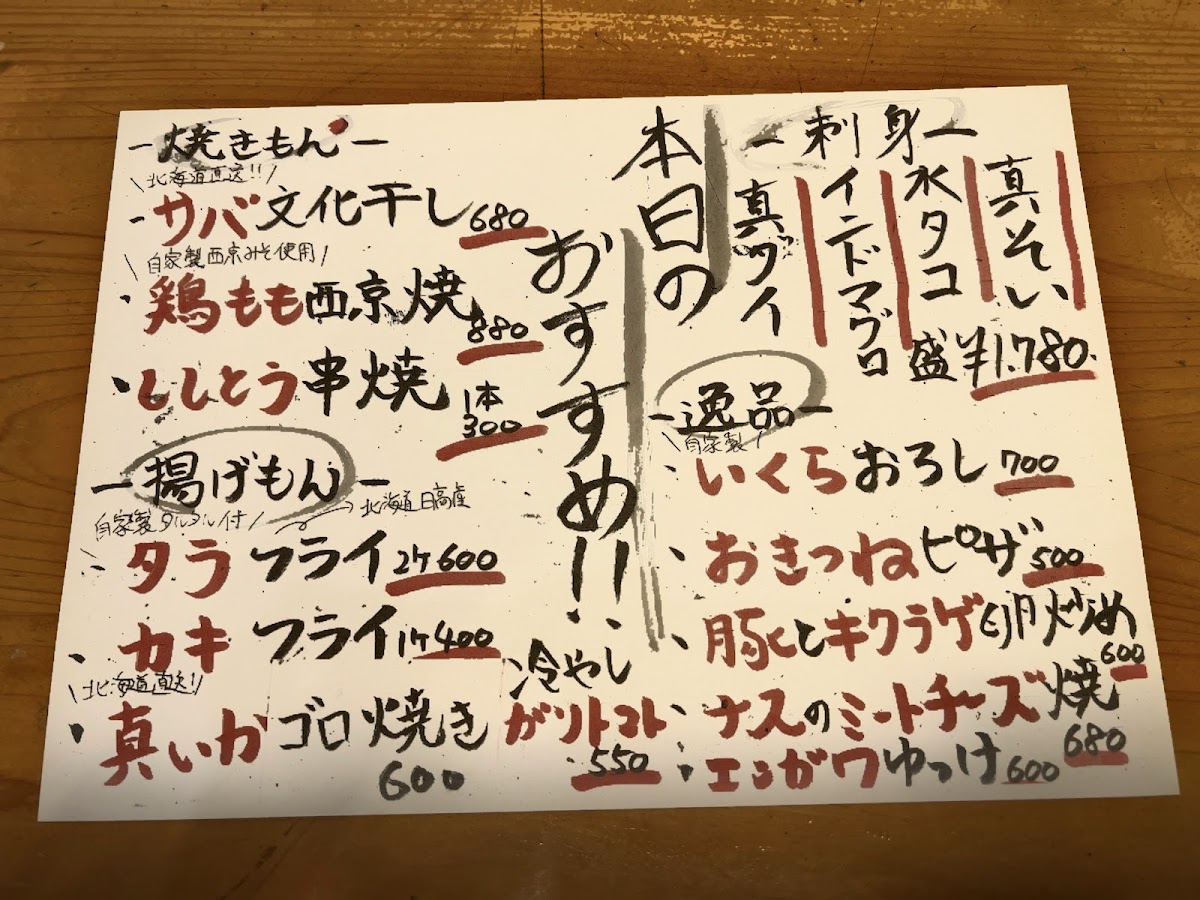 本日の
おすすめ!!
ー刺身ー
真そい
水タコ
インドマグロ
真ヅイ
盛¥1,780.
ー逸品ー
自家製
いくらおろし 700
おきつねピザ 500
豚とキクラゲ卵炒め 600
ナスのミートチーズ焼 680
エンガワゆっけ 600
冷やし
ガリトマト
550
ー焼きもんー
北海道直送!!
サバ文化干し 680
自家製西京みそ使用
鶏もも西京焼 880
ししとう串焼 1本 300
ー揚げもんー
自家製タルタル付
北海道日高産
タラフライ 2ケ 600
カキフライ 1ケ 400
北海道直送!!
真いかゴロ焼き
600